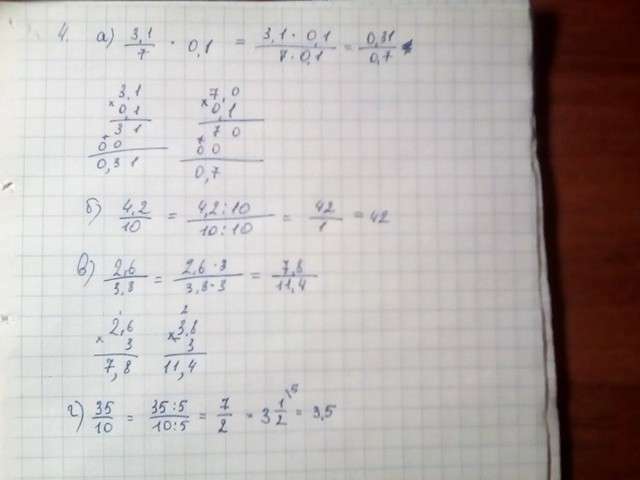 4. а) 3,1/7 · 0,1 = 3,1 · 0,1/7 · 0,1 = 0,31/0,7
3,1 7,0
× 0,1 × 0,1
3 1 7 0
+ 0 0 + 0 0
0,31 0,7
б) 4,2/10 = 4,2:10/10:10 = 42/1 = 42
в) 2,6/3,8 = 2,6·3/3,8·3 = 7,8/11,4
1 2
× 2,6 × 3,8
3 3
7,8 11,4
г) 35/10 = 35:5/10:5 = 7/2 = 3 1/2 \5 = 3,5